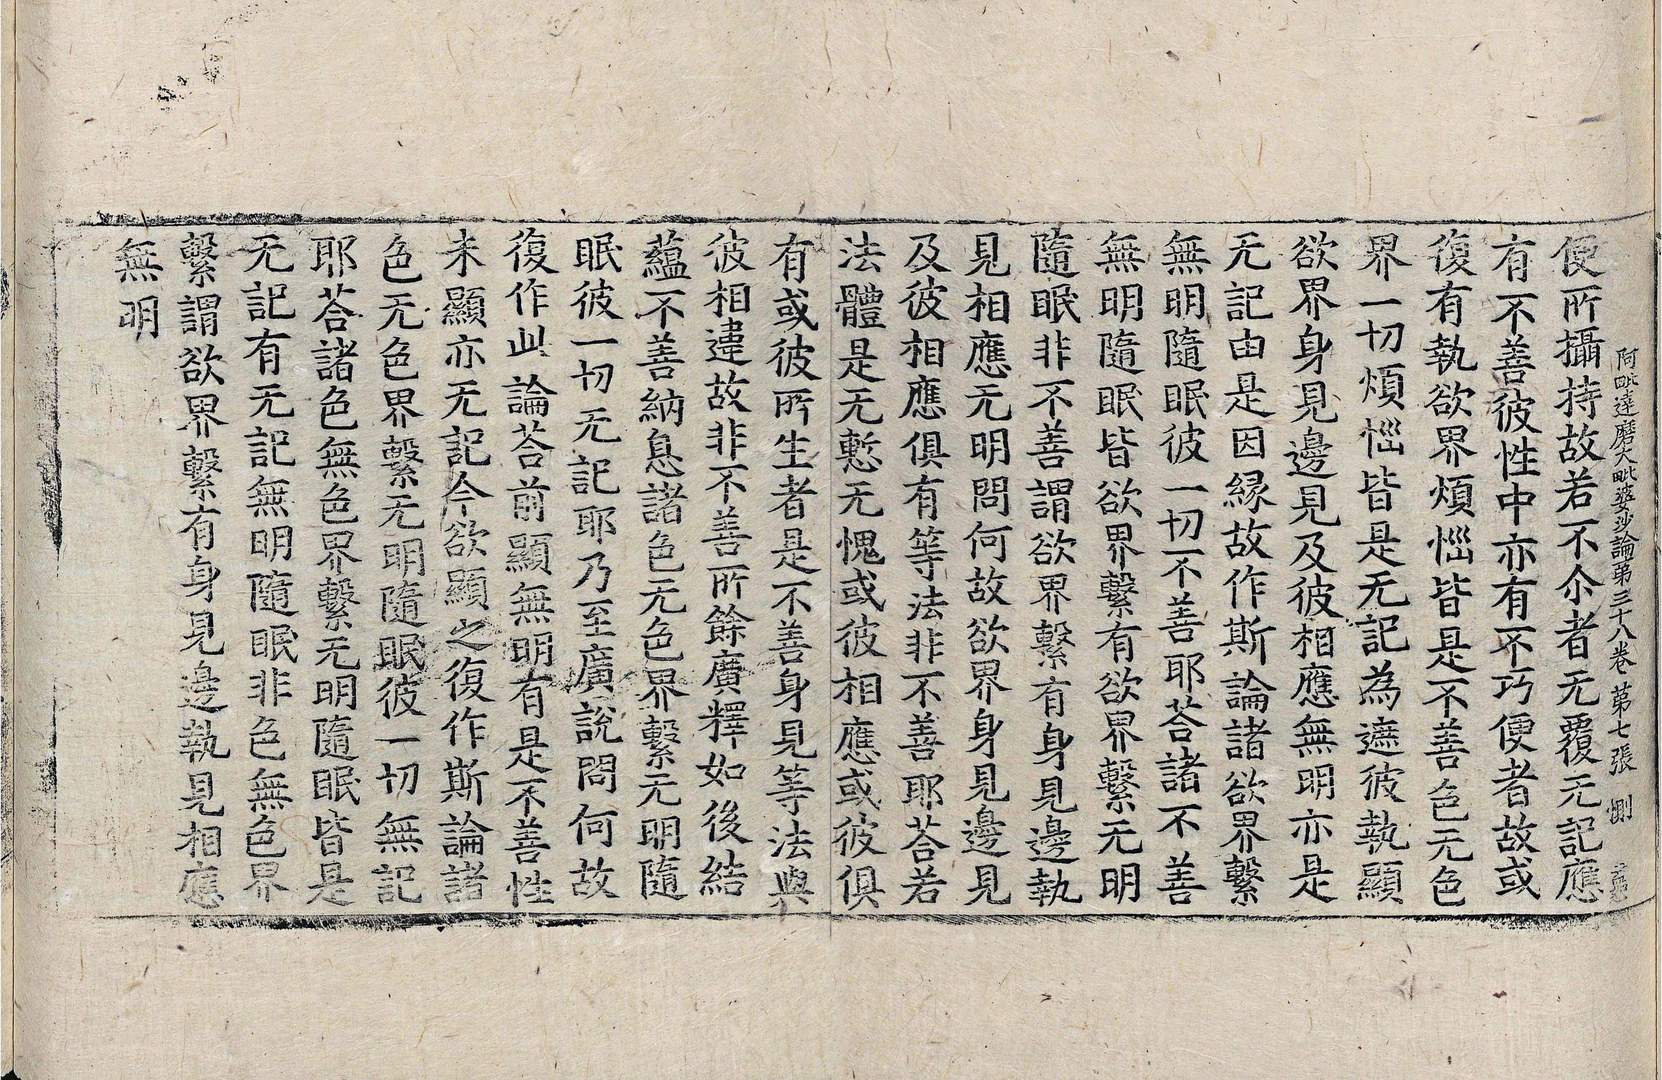 阿毗達磨大毗婆沙論第三十八卷 第七張 惻
便所攝持故若不尒者无覆无記應
有不善彼性中亦有不巧便者故或
復有執欲界煩惱皆是不善色无色
界一切煩惱皆是无記為遮彼執顯
欲界身見邊見及彼相應無明亦是
无記由是因緣故作斯論諸欲界繫
無明隨眠彼一切不善耶荅諸不善
無明隨眠皆欲界繫有欲界繫无明
隨眠非不善謂欲界繫有身見邊執
見相應无明問何故欲界身見邊見
及彼相應俱有等法非不善耶荅若
法體是无慙无愧或彼相應或彼俱
有或彼所生者是不善身見等法與
彼相違故非不善所餘廣釋如後結
蘊不善納息諸色无色界繫无明隨
眠彼一切无記耶乃至廣說問何故
復作此論荅前顯無明有是不善性
未顯亦无記今欲顯之復作斯論諸
色无色界繫无明隨眠彼一切無記
耶荅諸色無色界繫无明隨眠皆是
无記有无記無明隨眠非色無色界
繫謂欲界繫有身見邊執見相應
無明